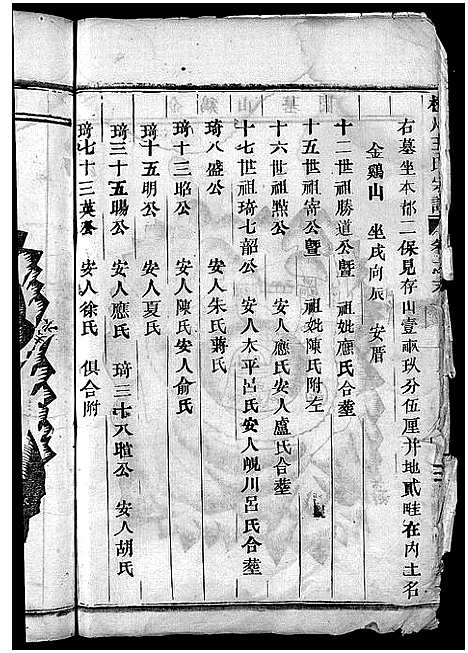 氏宗譜 卷之六 三
右墓坐本都二保見存山壹畒玖分伍厘并地貳畦在內土名
金鷄山 坐戌向辰 安厝
十二世祖勝道公曁 祖妣應氏合塟
十五世祖寄公曁 祖妣陳氏附左
十六世祖㸃公 安人應氏安人盧氏合塟
十七世祖琦七韶公 安人太平呂氏安人峴川呂氏合塟
琦八盛公 安人朱氏蔣氏
琦十三昭公 安人陳氏安人俞氏
琦十五明公 安人夏氏
琦三十五暘公 安人應氏 琦三十八暄公 安人胡氏
琦七十三英公 安人徐氏 俱合附